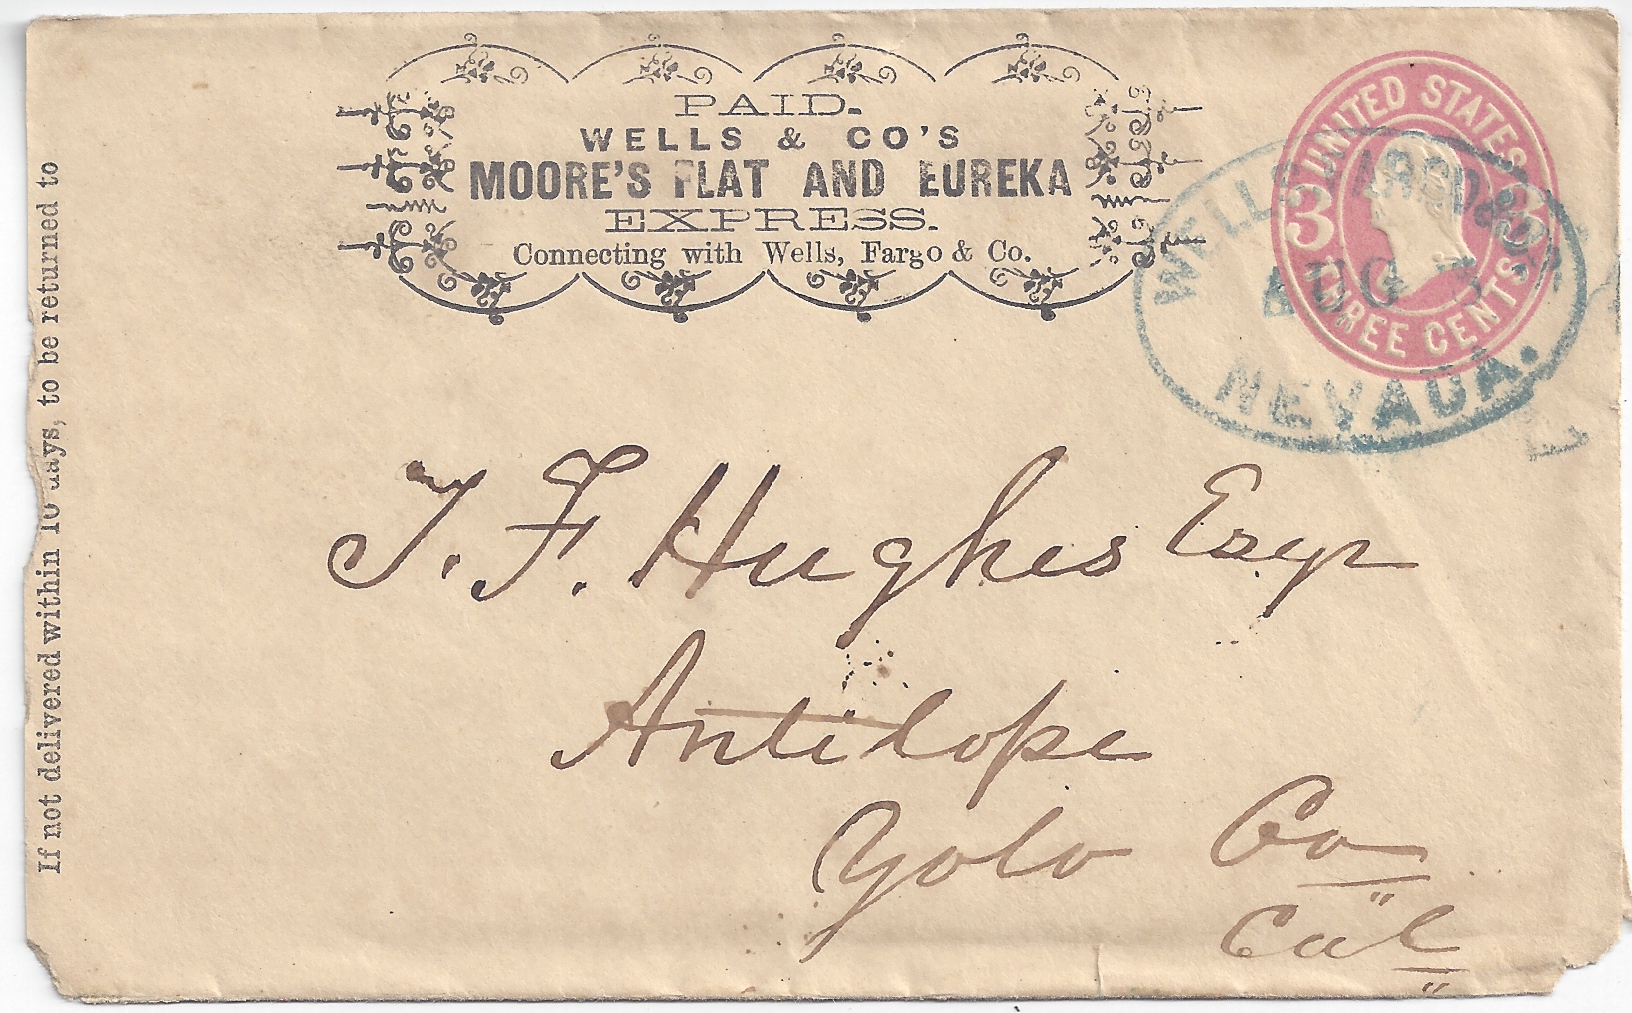 PAID.
WELLS & CO'S
MOORE'S FLAT AND EUREKA
EXPRESS.
Connecting with Wells, Fargo & Co.
UNITED STATES
3 3
THREE CENTS
WELLS FARGO & CO.
AUG 3
NEVADA.
If not delivered within 10 days, to be returned to
T. F. Hughes Esqr
Antilope
Yolo Co
Cal